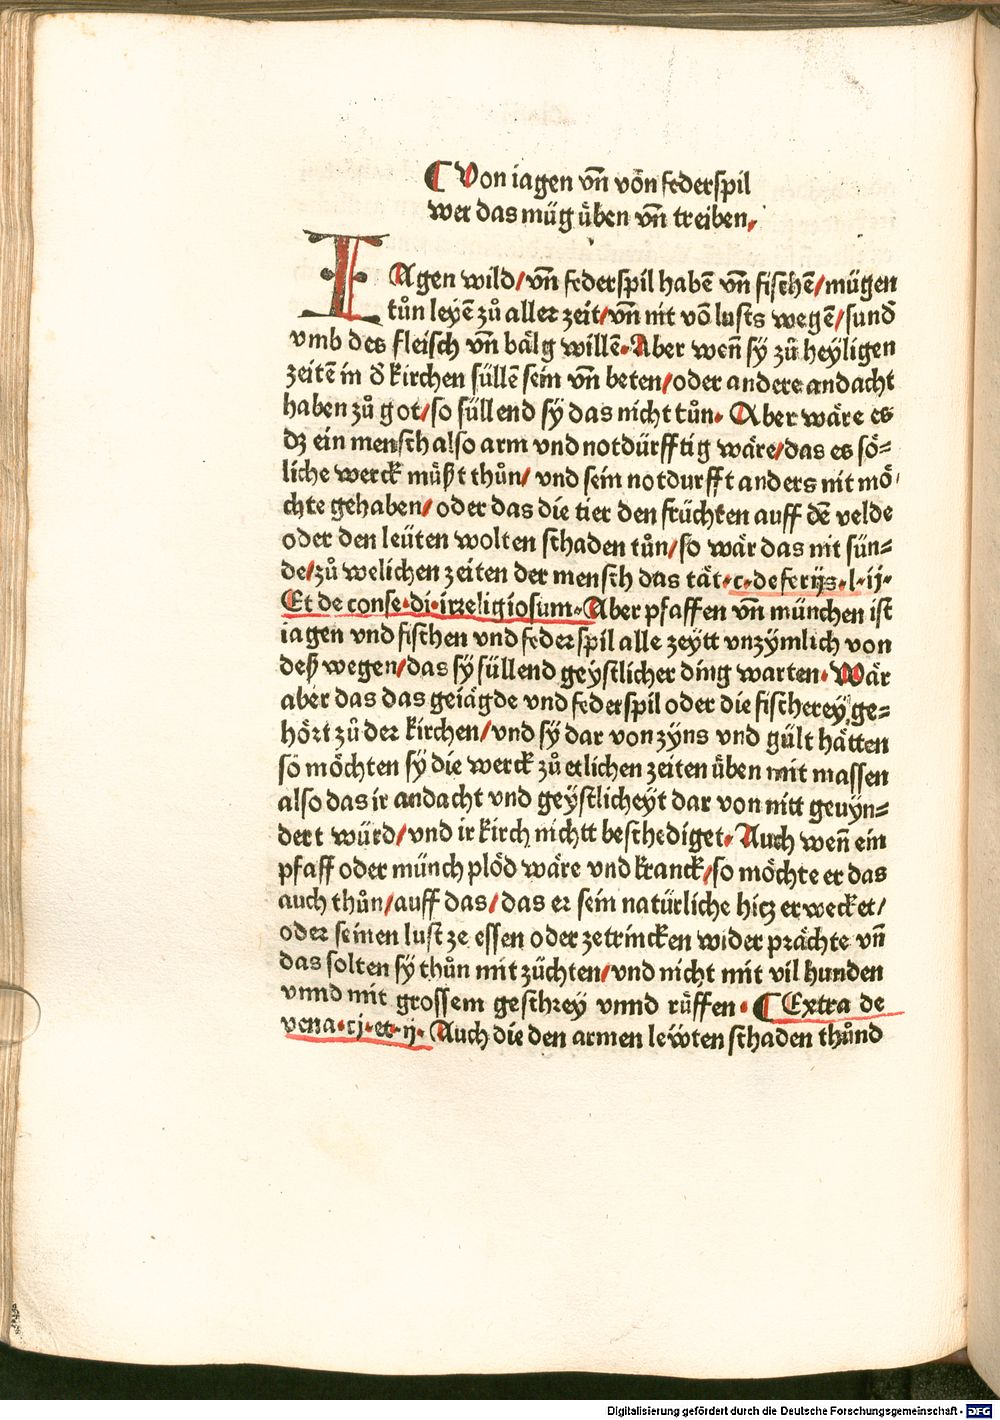 ¶ Von iagen vn̄ vō̈n federspil
wer das müg u̇̈ben vn̄ treiben,
IAgen wild/vn̄ federspil habē vn̄ fischē/mügen
tůn leyē zů aller zeit/vn̄ nit vō lusts wegē/sund̄
vmb des fleisch vn̄ bälg willē. Aber wen̄ sÿ zů heyligen
zeitē in d̄ kirchen süllē sein vn̄ beten/oder andere andacht
haben zů got/so süllend sÿ das nicht tůn. Aber wäre es
dz ein mensch also arm vnd notdürfftig wäre/das es sö⸗
liche werck müßt thůn/ vnd sein notdurfft anders nit mö
chte gehaben/ oder das die tier den früchten auff dē velde
oder den leüten wolten schaden tůn/so wär das nit sün⸗
de/zů welichen zeiten der mensch das tät.c.de ferijs.l.ij.
Et de conse.di.irreligiosum. Aber pfaffen vn̄ münchen ist
iagen vnd fischen vnd federspil alle zeytt vnzymlich von
deß wegen/das sÿ süllend geystlicher ding warten. Wär
aber das das geiägde vnd federspil oder die fischereÿ ge⸗
hört zů der kirchen/vnd sÿ dar von zÿns vnd gült hätten
so möchten sÿ die werck zů etlichen zeiten üben mit massen
also das ir andacht vnd geÿstlicheÿt dar von nitt geuÿn⸗
dert würd/vnd ir kirch nichtt beschediget. Auch wen̄ ein
pfaff oder münch plöd wäre vnd kranck/so möchte er das
auch thůn/auff das/das er sein natürliche hicz erwecket/
oder seinen lust ze essen oder zetrincken wider prächte vn̄
das solten sÿ thůn mit züchten/vnd nicht mit vil hunden
vnnd mit grossem geschrey vnnd rüffen. ¶ Extra de
vena.cj.et.ij. Auch die den armen lewten schaden thůnd
Digitalisierung gefördert durch die Deutsche Forschungsgemeinschaft - DFG